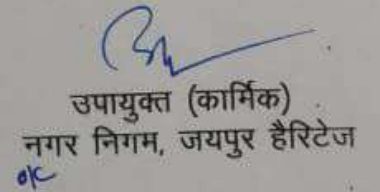 उपायुक्त (कार्मिक)
नगर निगम, जयपुर हैरिटेज
o/c